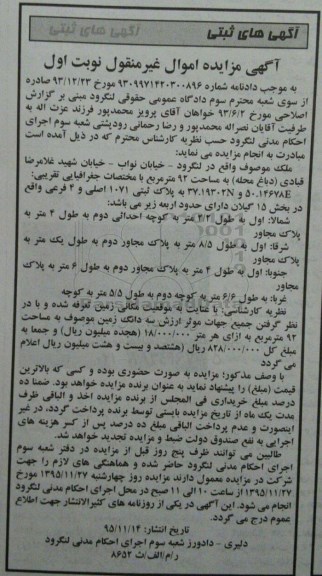 آگهی های ثبتی
آگهی های ثبتی
آگهی مزایده اموال غیرمنقول نوبت اول
به موجب دادنامه شماره ۹۳۰۹۹۷۱۴۲۰۳۰۰۸۹۶ مورخ ۹۳/۱۲/۲۳ صادره
از سوی شعبه محترم سوم دادگاه عمومی حقوقی لنگرود مبنی بر گزارش
اصلاحی مورخ ۹۳/۶/۲ خواهان آقای پرویز محمدپور فرزند عزت اله به
طرفیت آقایان نصراله محمدپور و رضا رحمانی رودپشتی شعبه سوم اجرای
احکام مدنی لنگرود حسب نظریه کارشناس محترم که در ذیل آمده است
مبادرت به انجام مزایده می نماید:
ملک موصوف واقع در لنگرود - خیابان نواب - خیابان شهید غلامرضا
قبادی (دباغ محله) به مساحت ۹۲ مترمربع با مختصات جغرافیایی تقریبی:
50.14678E و 37.19302N به پلاک ثبتی ۱۰۷۱ اصلی و ۴ فرعی واقع
در بخش ۱۵ گیلان دارای حدود اربعه زیر می باشد:
شمالا: اول به طول ۴/۲ متر به کوچه احداثی دوم به طول ۴ متر به
پلاک مجاور
شرقا: اول به طول ۸/۵ متر به پلاک مجاور دوم به طول یک متر به
پلاک مجاور
جنوبا: اول به طول ۴ متر به پلاک مجاور دوم به طول ۶ متر به پلاک
مجاور
غربا: به طول ۶/۶ متر به کوچه دوم به طول ۵/۵ متر به کوچه
نظریه کارشناسی: با عنایت به موقعیت مکانی زمین تعرفه شده و با در
نظر گرفتن جمیع جهات موثر ارزش سه دانگ زمین موصوف به مساحت
۹۲ مترمربع به ازای هر متر ۱۸/۰۰۰/۰۰۰ (هجده میلیون ریال) و جمعا به
مبلغ کل ۸۲۸/۰۰۰/۰۰۰ ریال (هشتصد و بیست و هشت میلیون ریال اعلام
می گردد
با وصف مذکور: مزایده به صورت حضوری بوده و کسی که بالاترین
قیمت (مبلغ) را پیشنهاد نماید به عنوان برنده مزایده خواهد بود. ضمنا ده
درصد مبلغ خریداری فی المجلس از برنده مزایده اخذ و الباقی ظرف
مدت یک ماه از تاریخ مزایده بایستی توسط برنده پرداخت گردد، در غیر
اینصورت و عدم پرداخت الباقی مبلغ ده درصد پس از کسر هزینه های
اجرایی به نفع صندوق دولت ضبط و مزایده تجدید خواهد شد.
طالبین می توانند ظرف پنج روز قبل از مزایده در دفتر شعبه سوم
اجرای احکام مدنی لنگرود حاضر شده و هماهنگی های لازم را جهت
شرکت در مزایده معمول دارند مزایده روز چهارشنبه ۱۳۹۵/۱۱/۲۷ مورخ
۱۳۹۵/۱۱/۲۷ از ساعت ۱۰ الی ۱۱ صبح در محل اجرای احکام مدنی لنگرود
انجام می شود. این آگهی در یکی از روزنامه های کثیرالانتشار جهت اطلاع
عموم درج می گردد.
تاریخ انتشار: ۹۵/۱۱/۱۴
دلیری - دادورز شعبه سوم اجرای احکام مدنی لنگرود
ر/م/الف/ث ۸۶۵۲